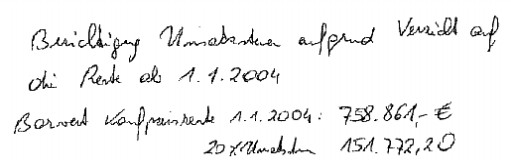 Berichtigung Umsatzsteuer aufgrund Verzicht auf
die Rente ab 1.1.2004
Barwert Kaufpreisrente 1.1.2004: 758.861,- €
20% Umsatzstn 151.772,20